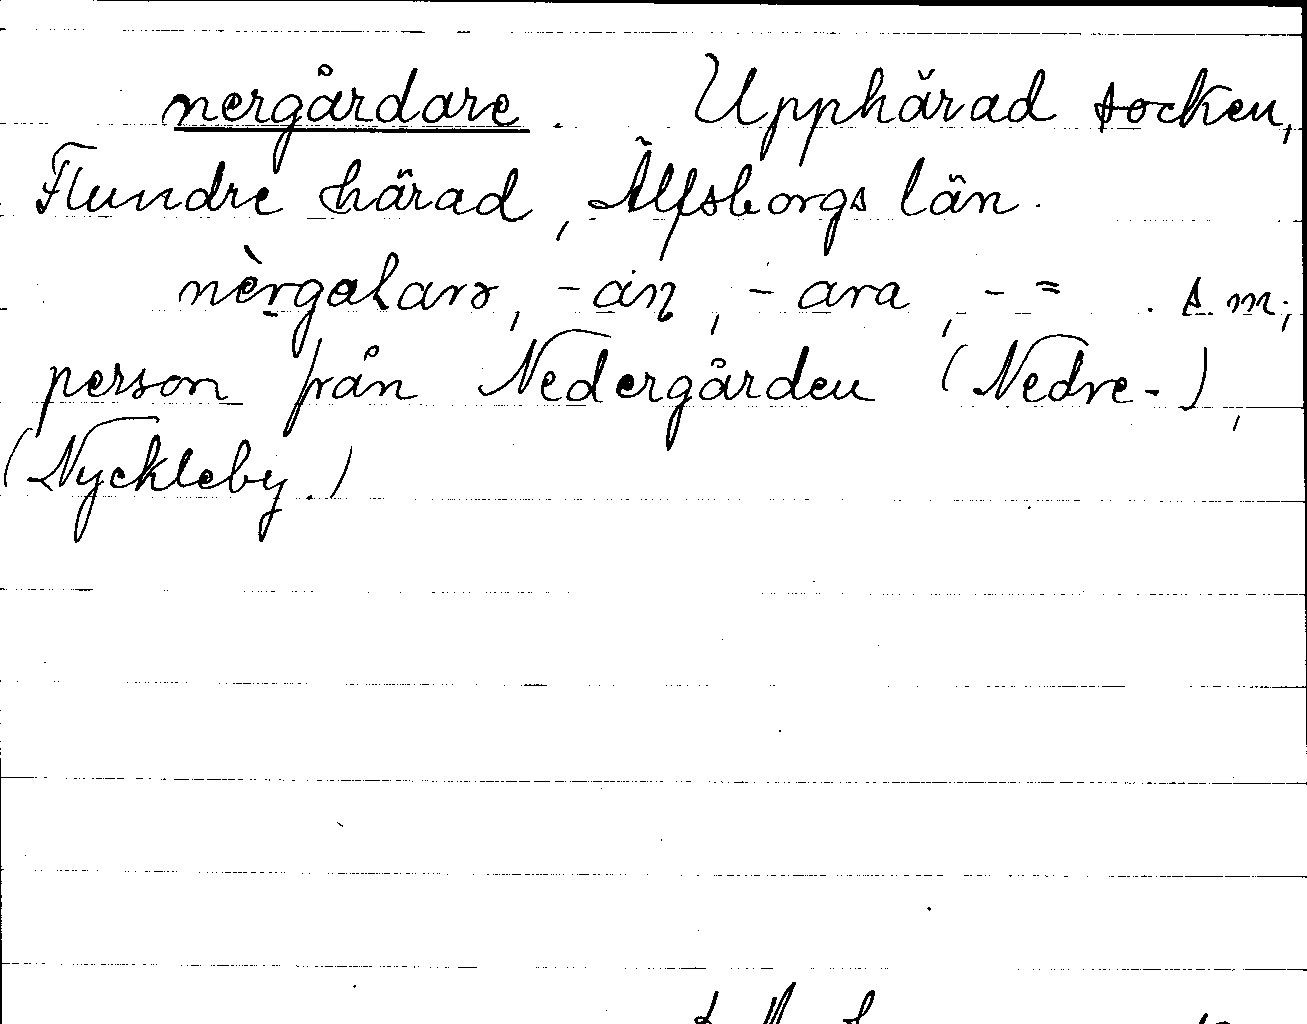 nergårdare. Upphärad socken,
Flundre härad, Älfsborgs län.
nèrgalarə, -an, -ara, - = . s m;
person från Nedergården (Nedre-),
(Nyckleby.)